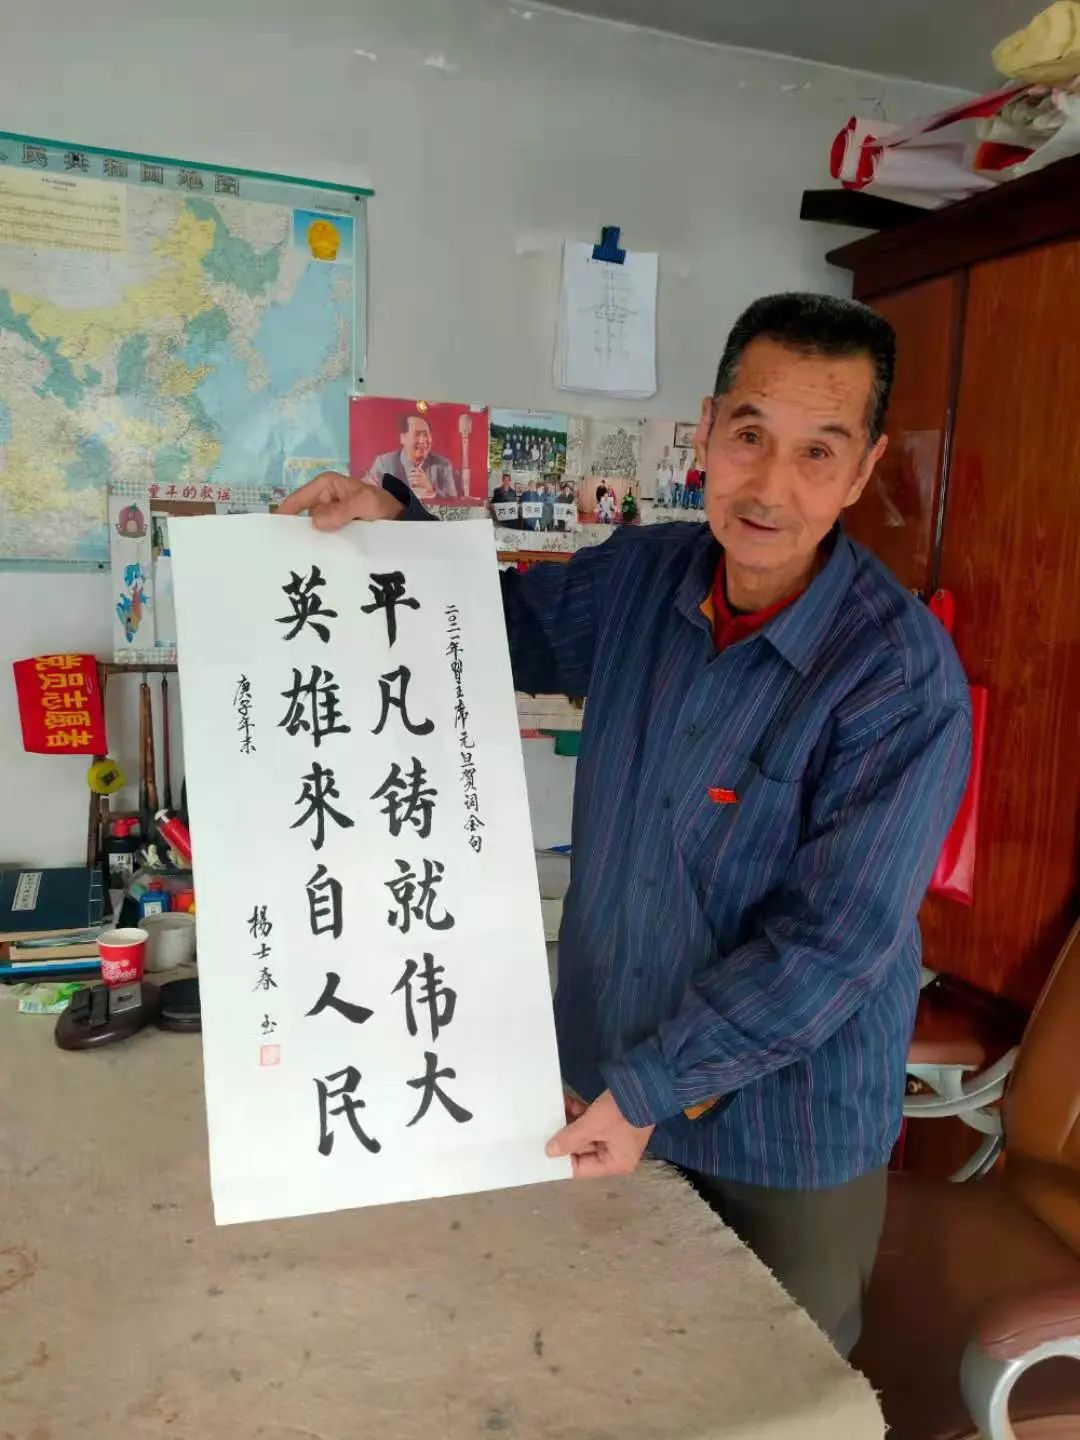 民共和国地图
童年的歌谣
二〇二一年習主席元旦贺词金句
平凡铸就伟大
英雄來自人民
庚子年末
楊士春
党员志愿者